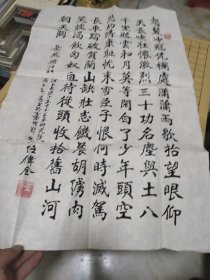 怒髮衝冠憑欄處瀟瀟雨歇抬望眼仰
天長嘯壯懷激烈三十功名塵與土八
千里路雲和月莫等閒白了少年頭空
悲切靖康恥猶未雪臣子恨何時滅駕
長車踏破賀蘭山缺壯志饑餐胡虜肉
笑談渴飲匈奴血待從頭收拾舊山河
朝天闕
岳飛滿江紅